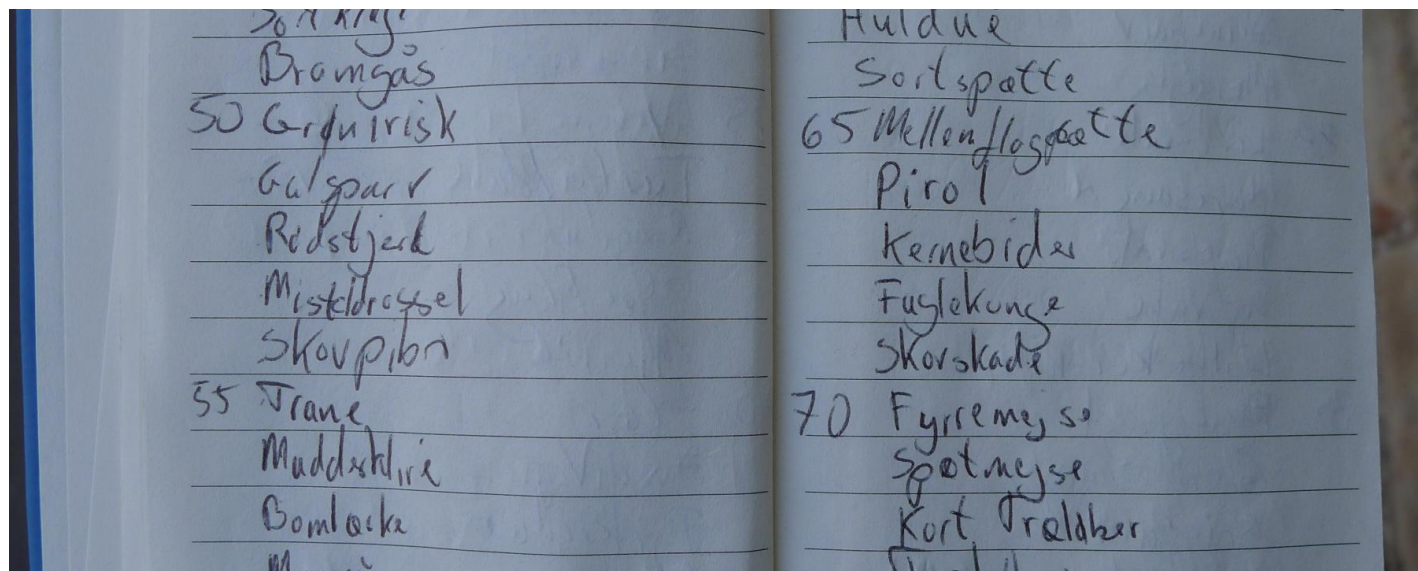 Sortkrage
Bramgås
50 Grønirisk
Gulspurv
Rødstjert
Misteldrossel
Skovpiber
55 Trane
Mudderklire
Bomlærke
Huldue
Sortspætte
65 Mellemflagspætte
Pirol
Kernebider
Fuglekonge
Skovskade
70 Fyrremejse
Spætmejse
Kort Træløber